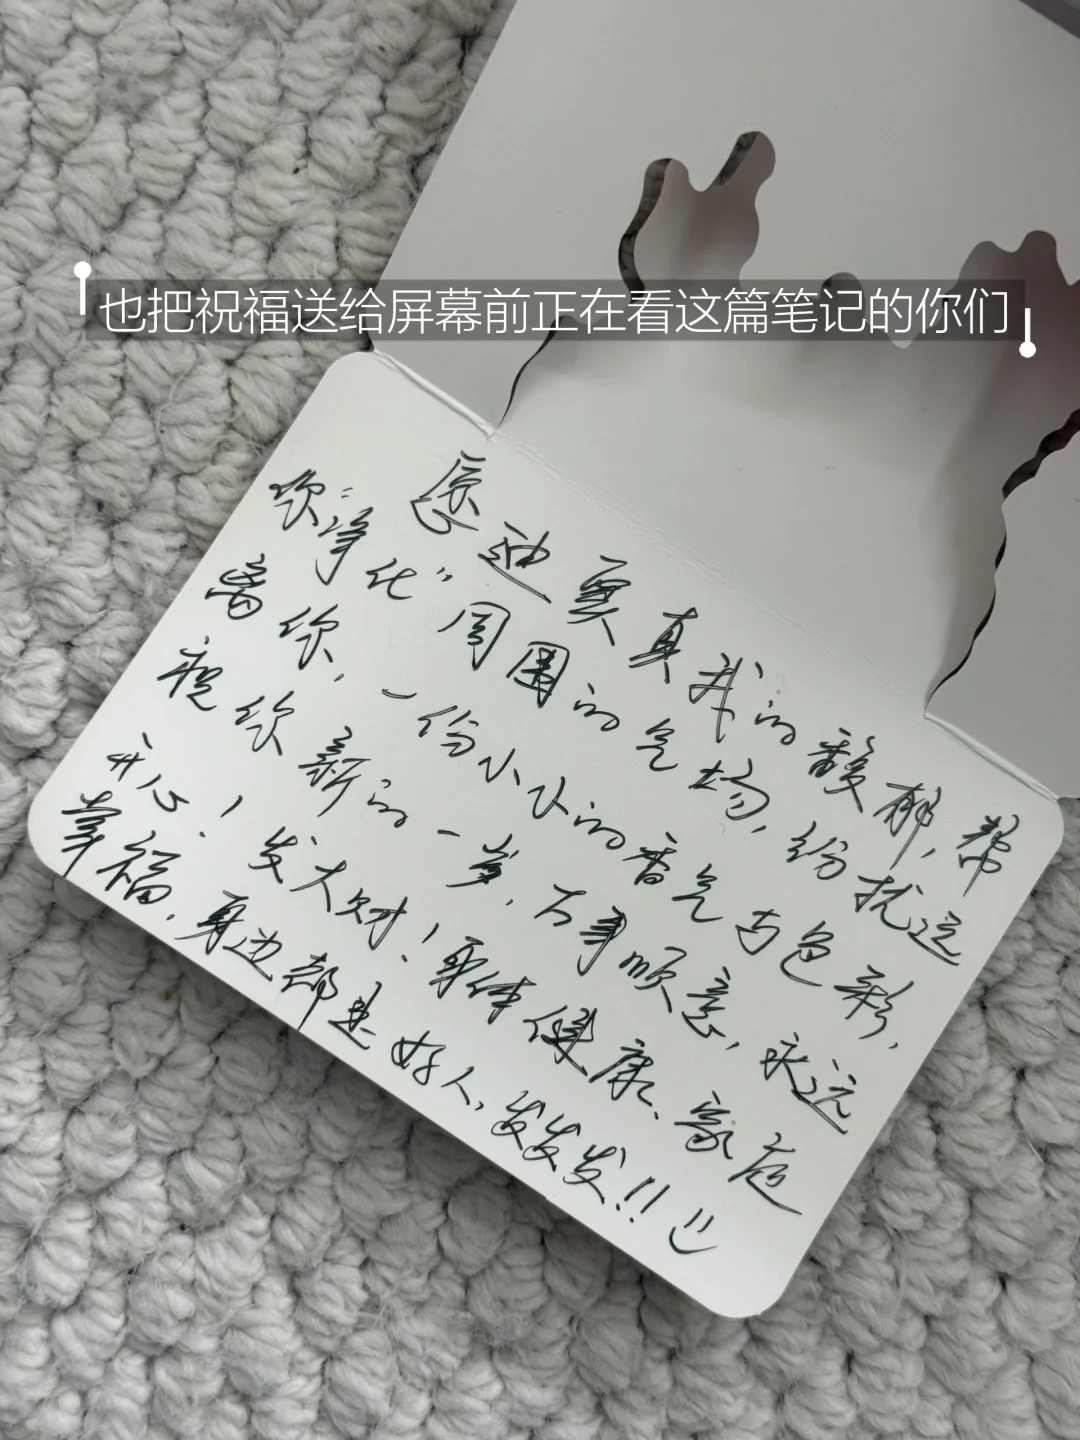 也把祝福送给屏幕前正在看这篇笔记的你们
愿迪奥真我的馥郁,帮
你"净化"周围的气场,纷扰远
离你,一份小小的香气与色彩,
祝你新的一岁,万事顺意,永远
开心!发大财!身体健康、家庭
幸福,身边都是好人,发发发!!!